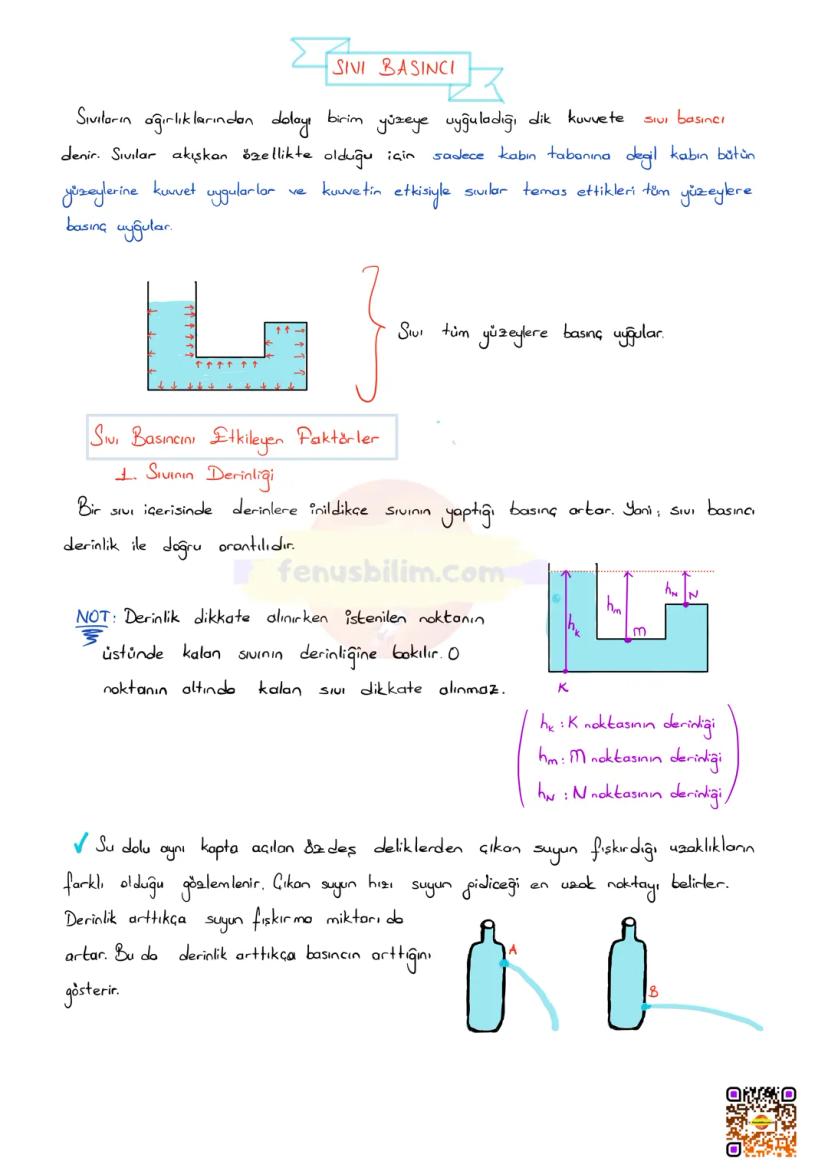 SIVI BASINCI
Sıvıların ağırlıklarından dolayı birim yüzeye uyguladığı dik kuvvete sıvı basıncı
denir. Sıvılar akışkan özellikte olduğu için sadece kabın tabanına değil kabın bütün
yüzeylerine kuvvet uygularlar ve kuvvetin etkisiyle sıvılar temas ettikleri tüm yüzeylere
basınç uygular.
Sıvı tüm yüzeylere basınç uygular.
Sıvı Basıncını Etkileyen Faktörler
1. Sıvının Derinliği
Bir sıvı içerisinde derinlere inildikçe sıvının yaptığı basınç artar. Yani; sıvı basıncı
derinlik ile doğru orantılıdır.
fenusbilim.com
NOT: Derinlik dikkate alınırken istenilen noktanın
üstünde kalan sıvının derinliğine bakılır. O
noktanın altında kalan sıvı dikkate alınmaz.
hN N
hm
hk
m
K
hk : K noktasının derinliği
hm : M noktasının derinliği
hN : N noktasının derinliği
✓ Su dolu aynı kapta açılan özdeş deliklerden çıkan suyun fışkırdığı uzaklıkların
farklı olduğu gözlemlenir. Çıkan suyun hızı suyun gidiceği en uzak noktayı belirler.
Derinlik arttıkça suyun fışkırma miktarı da
artar. Bu da derinlik arttıkça basıncın arttığını
gösterir.
A
B